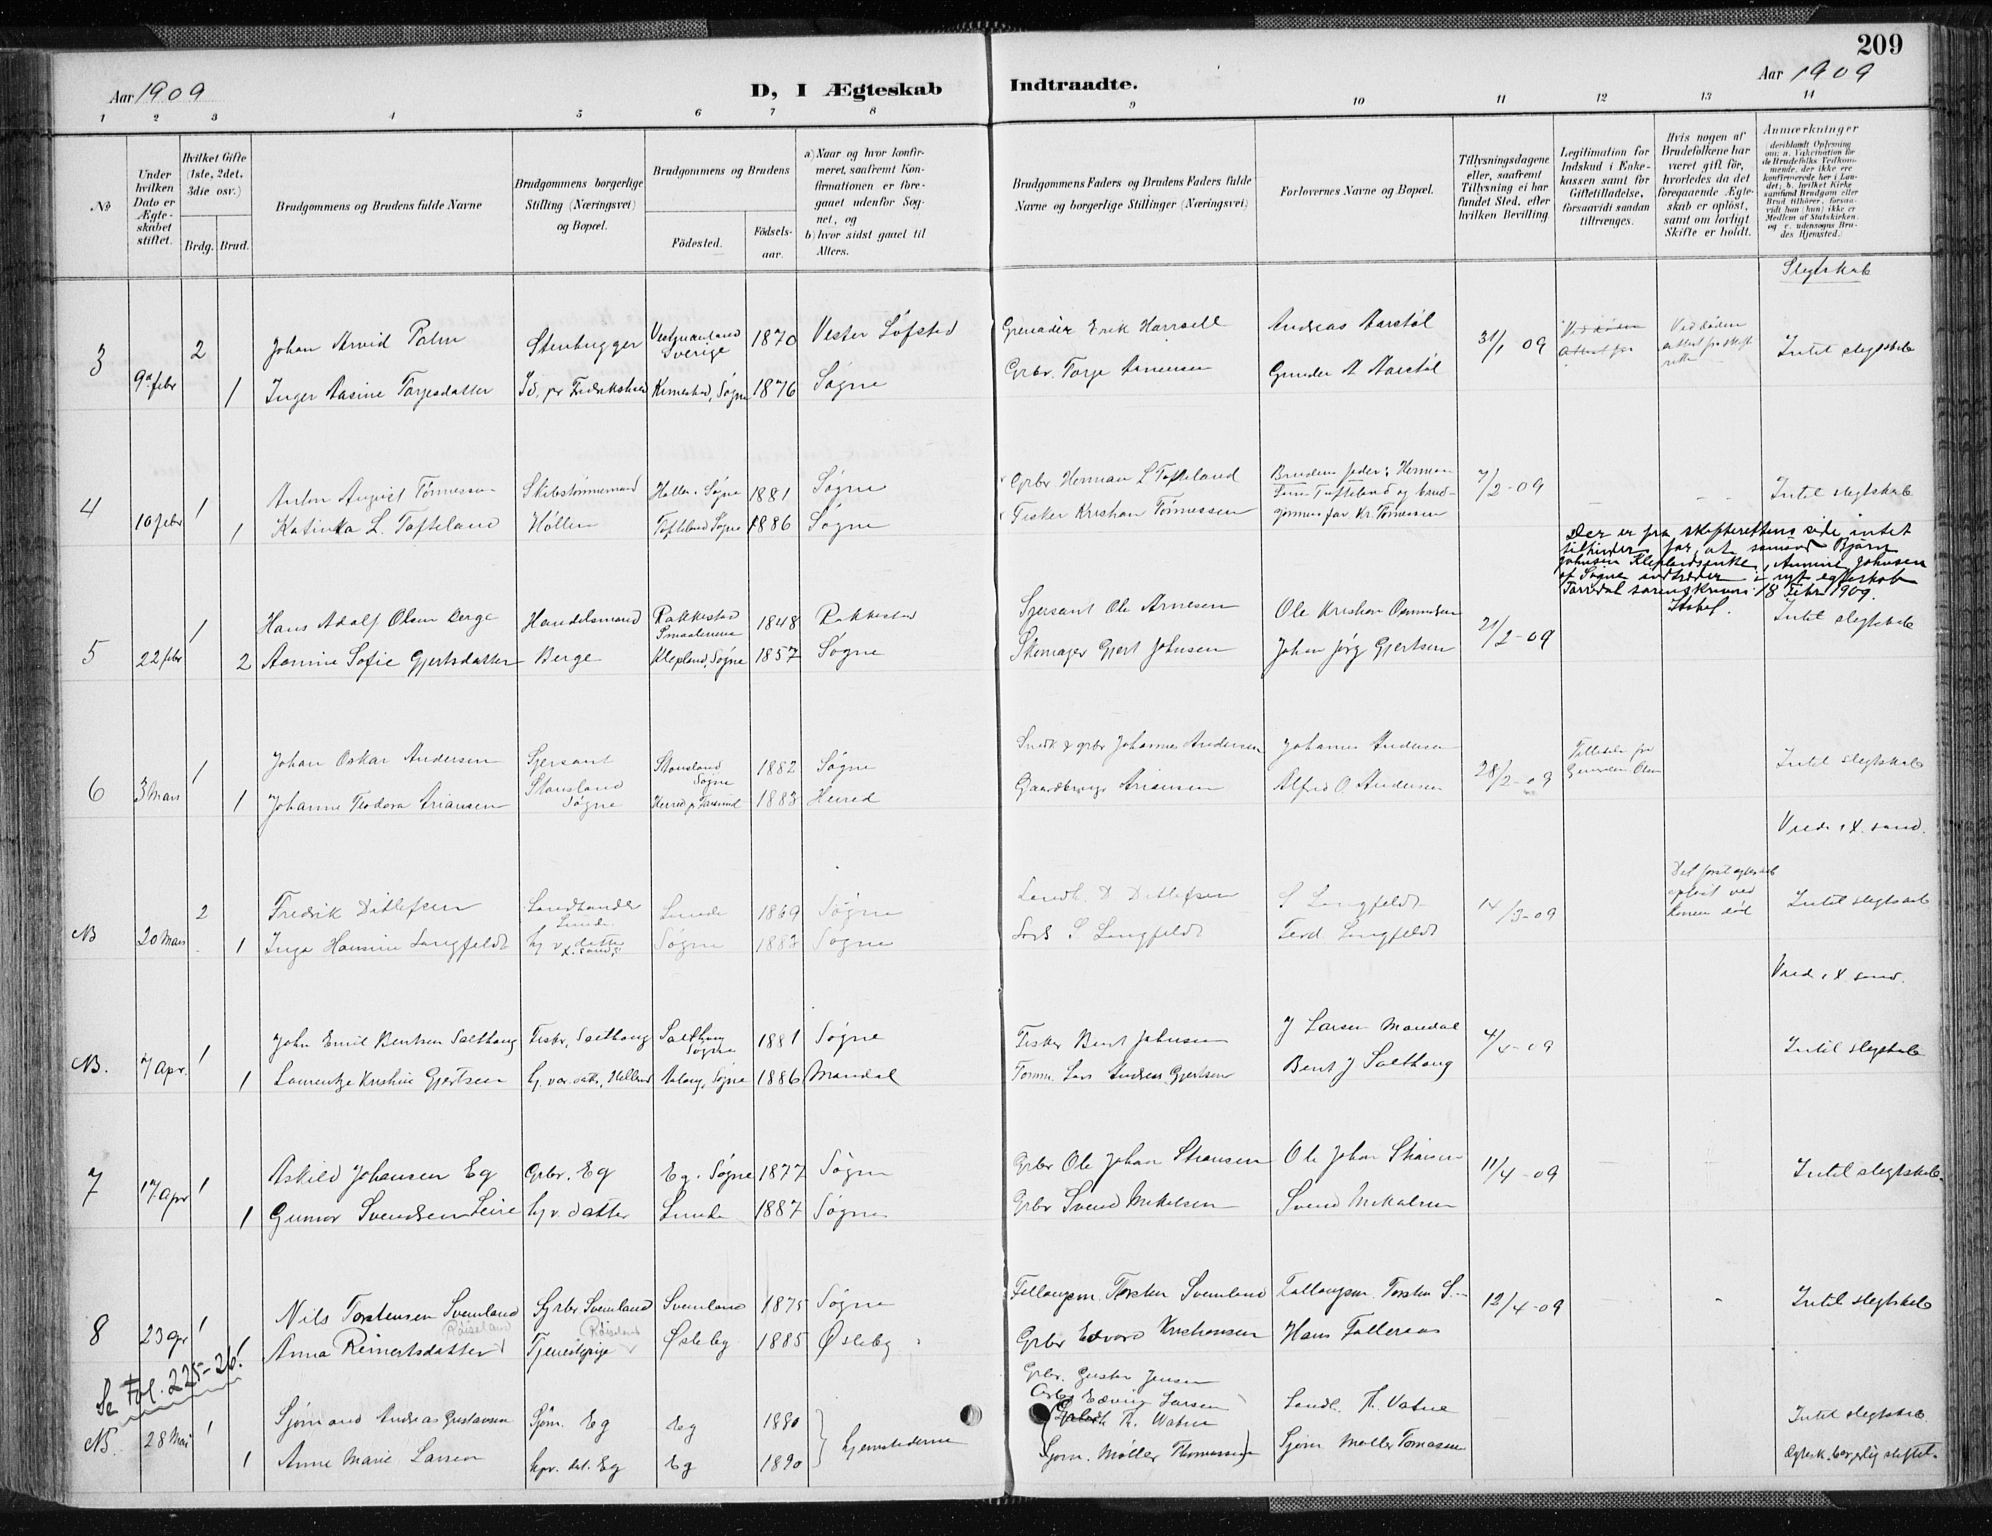 209
Aar 1909
D, I Ægteskab Indtraadte.
Aar 1909
1 2 3 4 5 6 7 8 9 10 11 12 13 14
No
Under hvilken Dato er Ægteskabet stiftet.
Hvilket Gifte (1ste, 2det, 3die osv.)
Brdg. Brud.
Brudgommens og Brudens fulde Navne
Brudgommens borgerlige Stilling (Næringsvei) og Bopæl.
Brudgommens og Brudens
Fødested.
Fødsels-aar.
a) Naar og hvor konfirmeret, saafremt Konfirmationen er foregaaet udenfor Sognet, og
b) hvor sidst gaaet til Alters.
Brudgommens Faders og Brudens Faders fulde Navne og borgerlige Stillinger (Næringsvei)
Forlovernes Navne og Bopæl.
Tillysningsdagene eller, saafremt Tillysning ei har fundet Sted, efter hvilken Bevilling.
Legitimation for Indskud i Enkekassen samt for Giftetilladelse, forsaavidt saadan tiltrænges.
Hvis nogen af Brudefolkene har været gift før, hvorledes da det foregaaende Ægteskab er opløst, samt om lovligt Skifte er holdt.
Anmærkninger
deriblandt Oplysning om: a. Vakcination for de Brudefolks Vedkommende, der ikke ere konfirmerede her i Landet; b. hvilket Kirkesamfund Brudgom eller Brud tilhører, forsaavidt han (hun) ikke er Medlem af Statskirken, og c. udensogns Brudes Hjemsted.
Slegtskab
3 9de febr 2 Johan Arvid Palm Stenhugger Vestmanland Sverige 1870 Vester Løfsted Grenader Erik Harraell Andreas Aarstøl 31/1 09 Ved døden attest fra skifteretten Intet slegtskab
1 Inger Aasine Torjesdatter Id, pr Fredrikshald Kimestad, Søgne 1876 Søgne Grbr. Torje Gunder A Aarstøl
4 10 febr 1 Anton August Tønnessen Skibstømmermand Høllen, Søgne 1881 Søgne Grbr Herman L Tofteland Brudens fader: Herman 7/2-09 Intet slegtskab
1 Katinka L. Tofteland Høllen Tofteland Søgne 1886 Søgne Fisker Kristian Tønnessen Tofteland og brudgommens far Kr. Tønnessen
Der er fra skifterettens side intet
tilhinder for at Bjørn
Johnsen Kleplands enke, Aamine Johnsen
af Søgne indtræder i nyt egteskab
Torridal sorenskriveri 18 Febr 1909.
5 22 febr 1 Hans Adolf Olsen Berge Handelsmand Rakkestad Smaalenene 1848 Rakkestad Sjersant Ole Arnesen Ole Kristian 21/2-09 Intet slegtskab
2 Aamine Sofie Gjertsdatter Berge Klepland, Søgne 1857 Søgne Skomager Gjert Johnsen Johan Jørg Gjertsen
6 3 Mars 1 Johan Oskar Andersen Sjersant Stausland Søgne 1882 Søgne Snedk & grbr Johannes Andersen Johannes Andersen 28/2-09 Intet slegtskab
1 Johanne Teodora Ariansen Stausland Søgne Herred p. Farsund 1883 Herred Gaardbruger Ariansen Alfred O. Andersen
Viede i X. sand.
NB 20 Mars 2 Fredrik Ditlefsen Landhandler Lunde Lunde 1869 Søgne Landh. D Ditlefsen S Langfeldt 14/3-09 Det første egteskab opløst ved konens død Intet slegtskab
1 Inga Hansine Langfeldt hj v datter X. sand Søgne 1882 Søgne Lods S Langfeldt Ferd Langfeldt
Viede i X. sand.
NB. 7 Apr. 1 John Emil Bentsen Salthaug Fisker, Salthaug Salthaug Søgne 1881 Søgne Fisker Bent Johnsen J Larsen Mandal 4/4-09 Intet slegtskab
1 Laurentze Kristine Gjertsen hj. vær. datt, Helland Søgne 1886 Mandal Tømm. Lars Andreas Gjertsen Bent J Salthaug
7 17 Apr 1 Askild Johansen Eg Grbr. Eg Eg. Søgne 1877 Søgne Grbr Ole Johan Stiansen Ole Johan Stiansen 11/4-09 Intet slegtskab.
1 Gunvor Svendsen Leire hj v datter Lunde 1887 Søgne Grbr Svend Mikalsen Svend Mikalsen
8 23 apr 1 Nils Torstensen Svennland Grbr Svennland Svennland 1875 Søgne Fellaugsm. Torsten Svennland Fallaugsm. Torsten S. 12/4-09 Intet slegtskab
1 Anna Reinertsdatter Røiseland Tjenestepige Røiseland Øslebø 1885 Øslebø Grbr Edvard Kristiansen Hans Falleraas
Se Fol. 225-26!
NB. 28 Mai 1 Sjømand Andreas Gustavsen Sjøm. Eg Eg 1880 hjemstederne Grbr. Gustav Jensen Landh. Th. Vatne Intet slegtskab.
1 Anne Marie Larsen hjv. dat. Eg Eg 1890 Edvin Larsen Landh. Th. Vatne Sjøm. Møller Thomassen Sjøm Møller Tomassen Ægtesk. borgerlig stiftet.